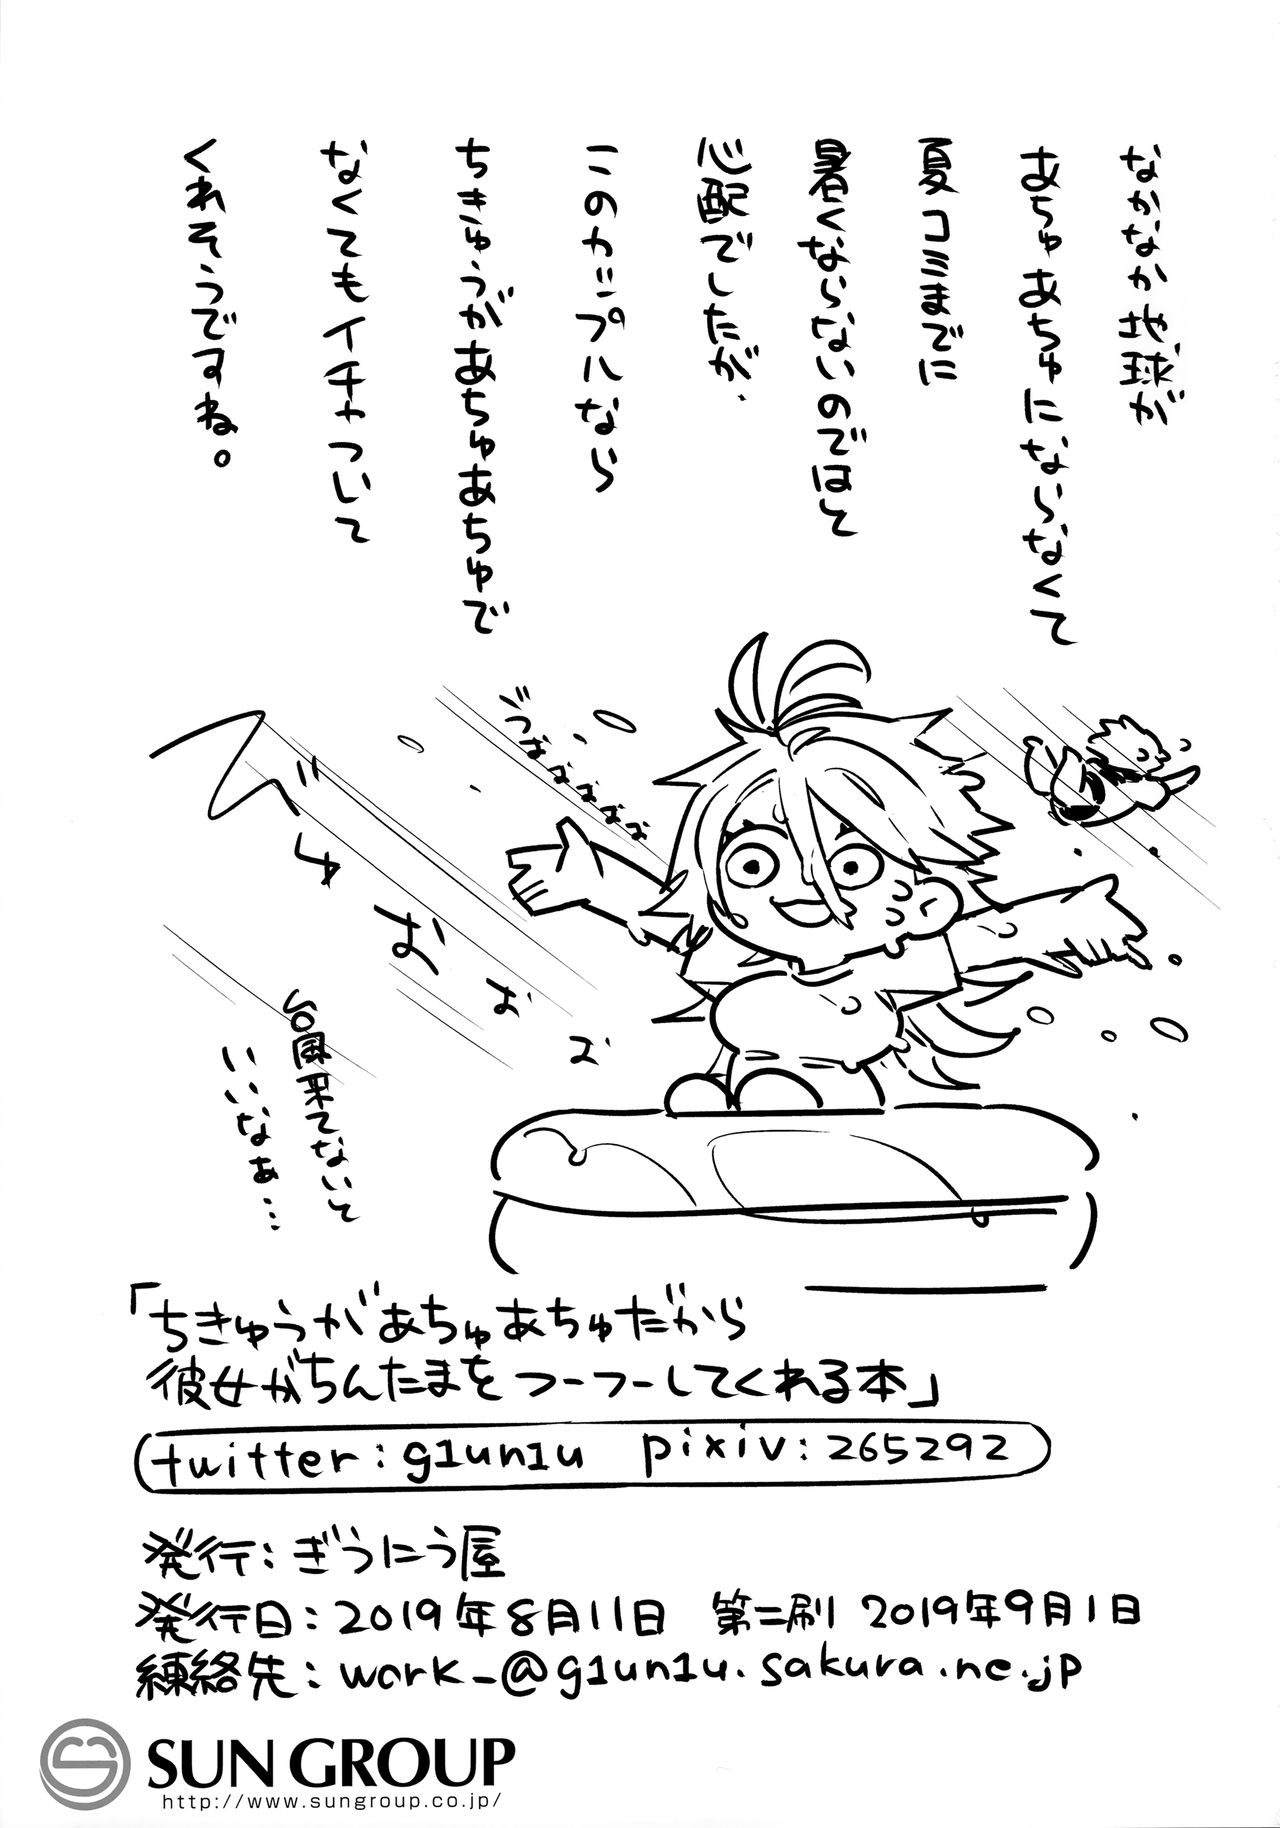 なかなか地球が
あちゅあちゅにならなくて
夏コミまでに
暑くならないのではと
心配でしたが、
このカップルなら
ちきゅうがあちゅあちゅで
なくてもイチャついて
くれそうですね。
いいなぁ…
「ちきゅうがあちゅあちゅだから
彼女がちんたまをフーフーしてくれる本」
twitter:g1un1u pixiv:265292
発行:ぎうにう屋
発行日:2019年8月11日 第二刷 2019年9月1日
練絡先:work_@g1un1u.sakura.ne.jp
SUN GROUP
http://www.sungroup.co.jp/